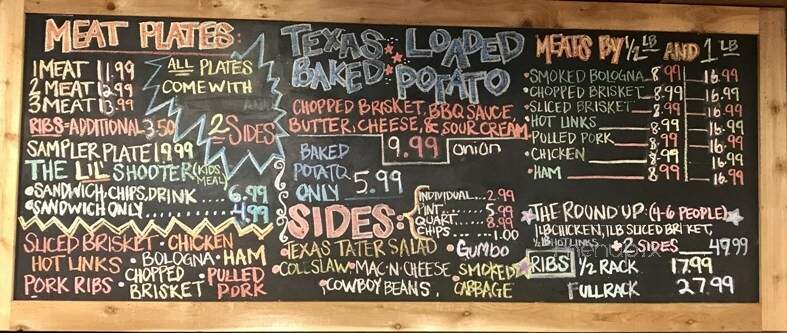 MEAT PLATES:
1 MEAT 11.99
2 MEAT 12.99
3 MEAT 13.99
RIBS=ADDITIONAL 3.50
ALL PLATES
COME WITH
2 SIDES
SAMPLER PLATE 19.99
THE LIL' SHOOTER (KIDS MEAL)
•SANDWICH, CHIPS, DRINK.... 6.99
•SANDWICH ONLY.......... 4.99
SLICED BRISKET • CHICKEN
HOT LINKS • BOLOGNA • HAM
PORK RIBS • CHOPPED BRISKET • PULLED PORK
TEXAS LOADED
BAKED POTATO
CHOPPED BRISKET, BBQ SAUCE,
BUTTER, CHEESE, & SOUR CREAM
9.99 onion
BAKED
POTATO
ONLY 5.99
SIDES:
INDIVIDUAL... 2.99
PINT..... 5.99
QUART..... 8.99
CHIPS..... 1.00
•TEXAS TATER SALAD •GUMBO
•COLESLAW •MAC-N-CHEESE •SMOKED CABBAGE
•COWBOY BEANS
MEATS BY 1/2 LB AND 1 LB
•SMOKED BOLOGNA 8.99 16.99
•CHOPPED BRISKET 8.99 16.99
•SLICED BRISKET 8.99 16.99
•HOT LINKS 8.99 16.99
•PULLED PORK 8.99 16.99
•CHICKEN 8.99 16.99
•HAM 8.99 16.99
THE ROUND UP: (4-6 PEOPLE)
1LB CHICKEN, 1LB SLICED BRISKET,
1/2 LB HOT LINKS +2 SIDES 49.99
RIBS 1/2 RACK 17.99
FULL RACK 27.99